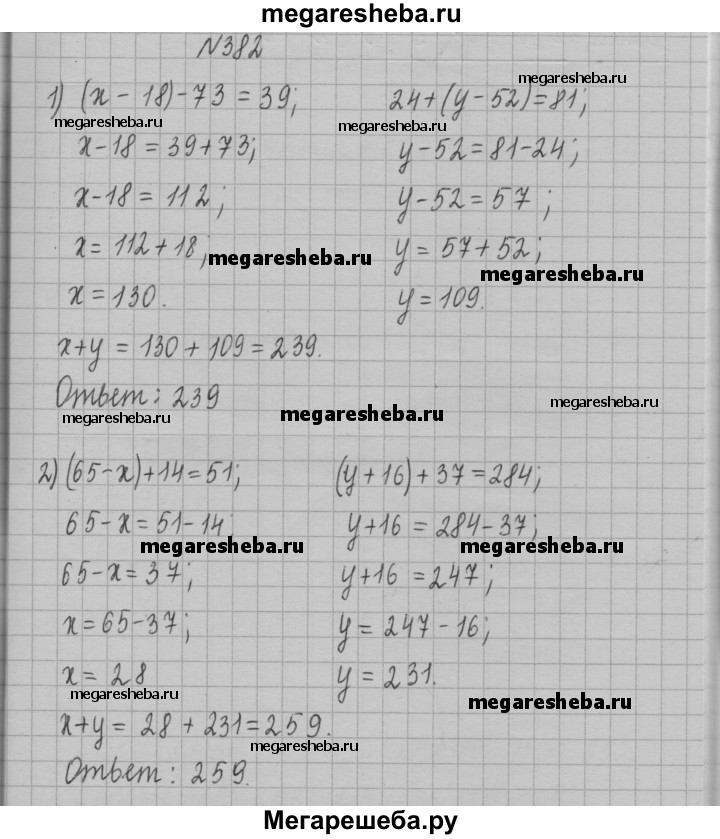 megaresheba.ru
N382
1) (x - 18) - 73 = 39; 24 + (y - 52) = 81;
megaresheba.ru
megaresheba.ru megaresheba.ru
x - 18 = 39 + 73; y - 52 = 81 - 24;
x - 18 = 112; y - 52 = 57;
x = 112 + 18; y = 57 + 52;
megaresheba.ru megaresheba.ru
x = 130. y = 109.
x + y = 130 + 109 = 239.
Ответ: 239
megaresheba.ru megaresheba.ru megaresheba.ru
2) (65 - x) + 14 = 51; (y + 16) + 37 = 284;
65 - x = 51 - 14 y + 16 = 284 - 37;
megaresheba.ru megaresheba.ru
65 - x = 37; y + 16 = 247;
x = 65 - 37; y = 247 - 16;
x = 28 y = 231.
megaresheba.ru megaresheba.ru
x + y = 28 + 231 = 259.
megaresheba.ru
Ответ: 259.
Мегарешеба.ру